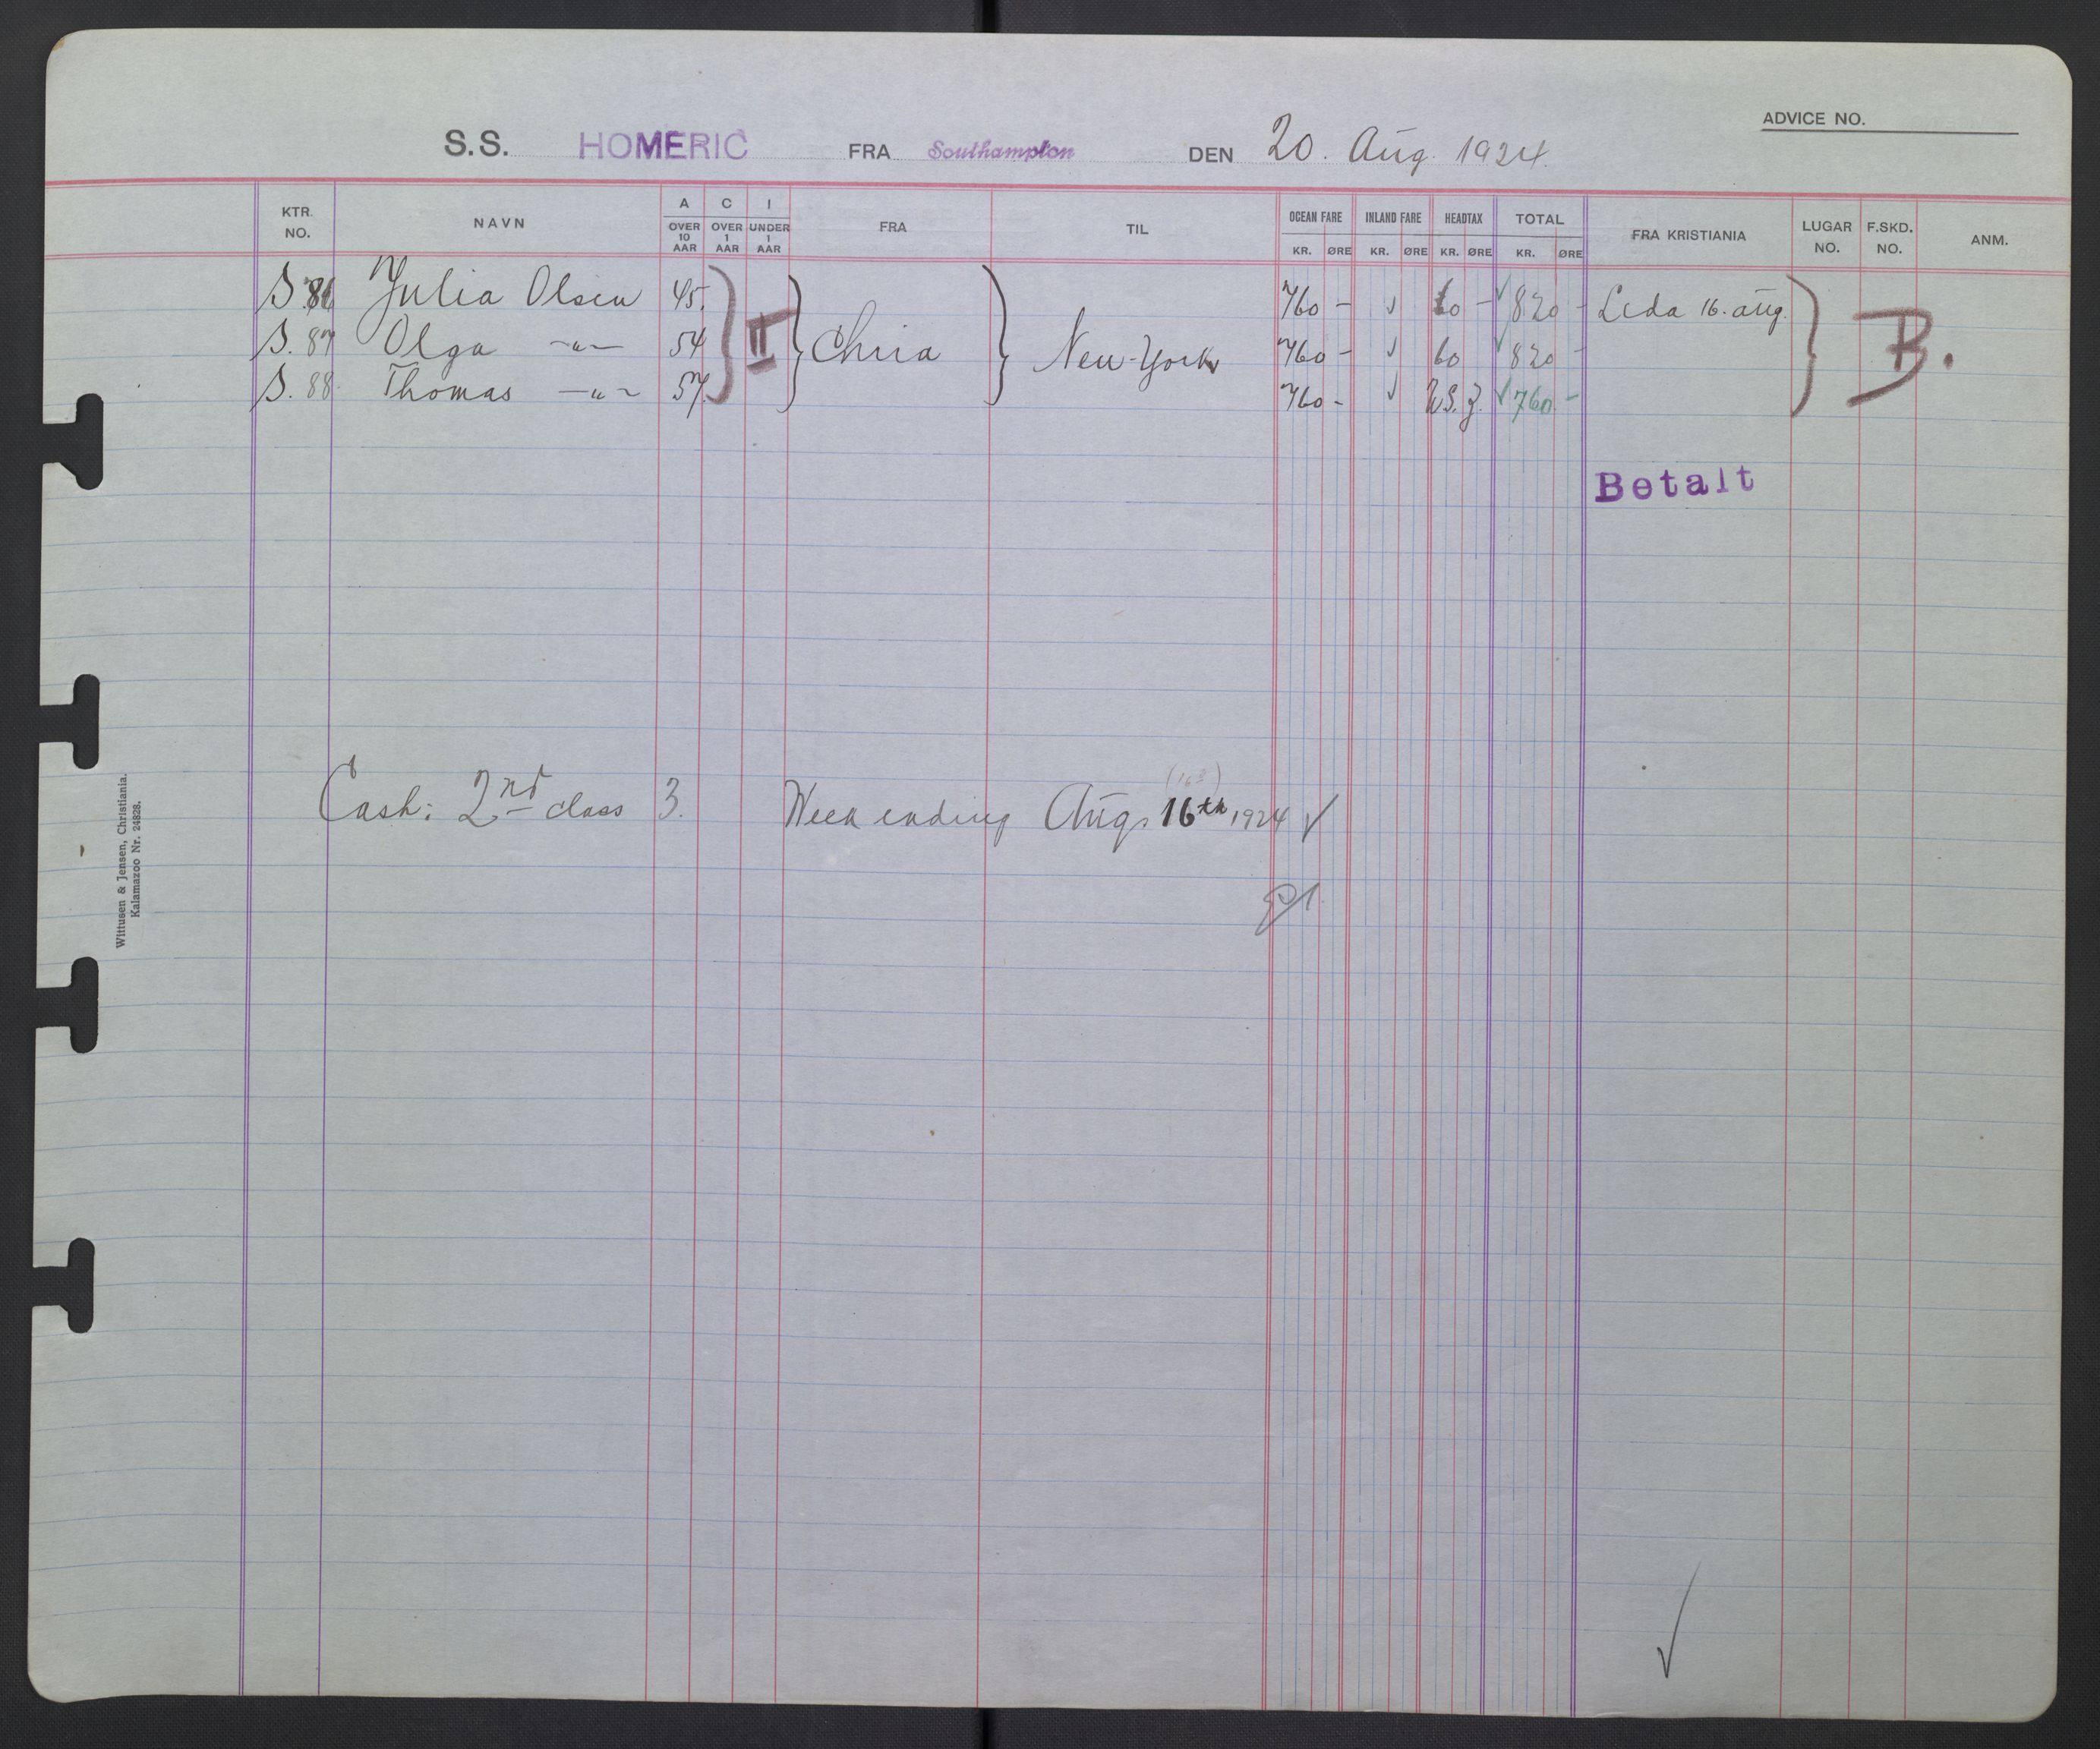 ADVICE NO.
S.S. HOMERIC FRA Southampton DEN 20. Aug. 1924.
KTR. NO. NAVN A OVER 10 AAR C OVER 1 AAR I UNDER 1 AAR FRA TIL OCEAN FARE KR. ØRE INLAND FARE KR. ØRE HEADTAX KR. ØRE TOTAL KR. ØRE FRA KRISTIANIA LUGAR NO. F.SKD. NO. ANM.
S. 86 Julia Olsen 45. 760 - 60 - 820 - Leda 16. aug.
S. 87 Olga -"- 54 II Chria New-York 760 - 60 820 - B.
S. 88. Thomas -"- 57. 760 - 760. -
Betalt
Cash: 2nd class 3. Week ending Aug. 16th, 1924
Wittusen & Jensen, Christiania.
Kalamazoo Nr. 24828.